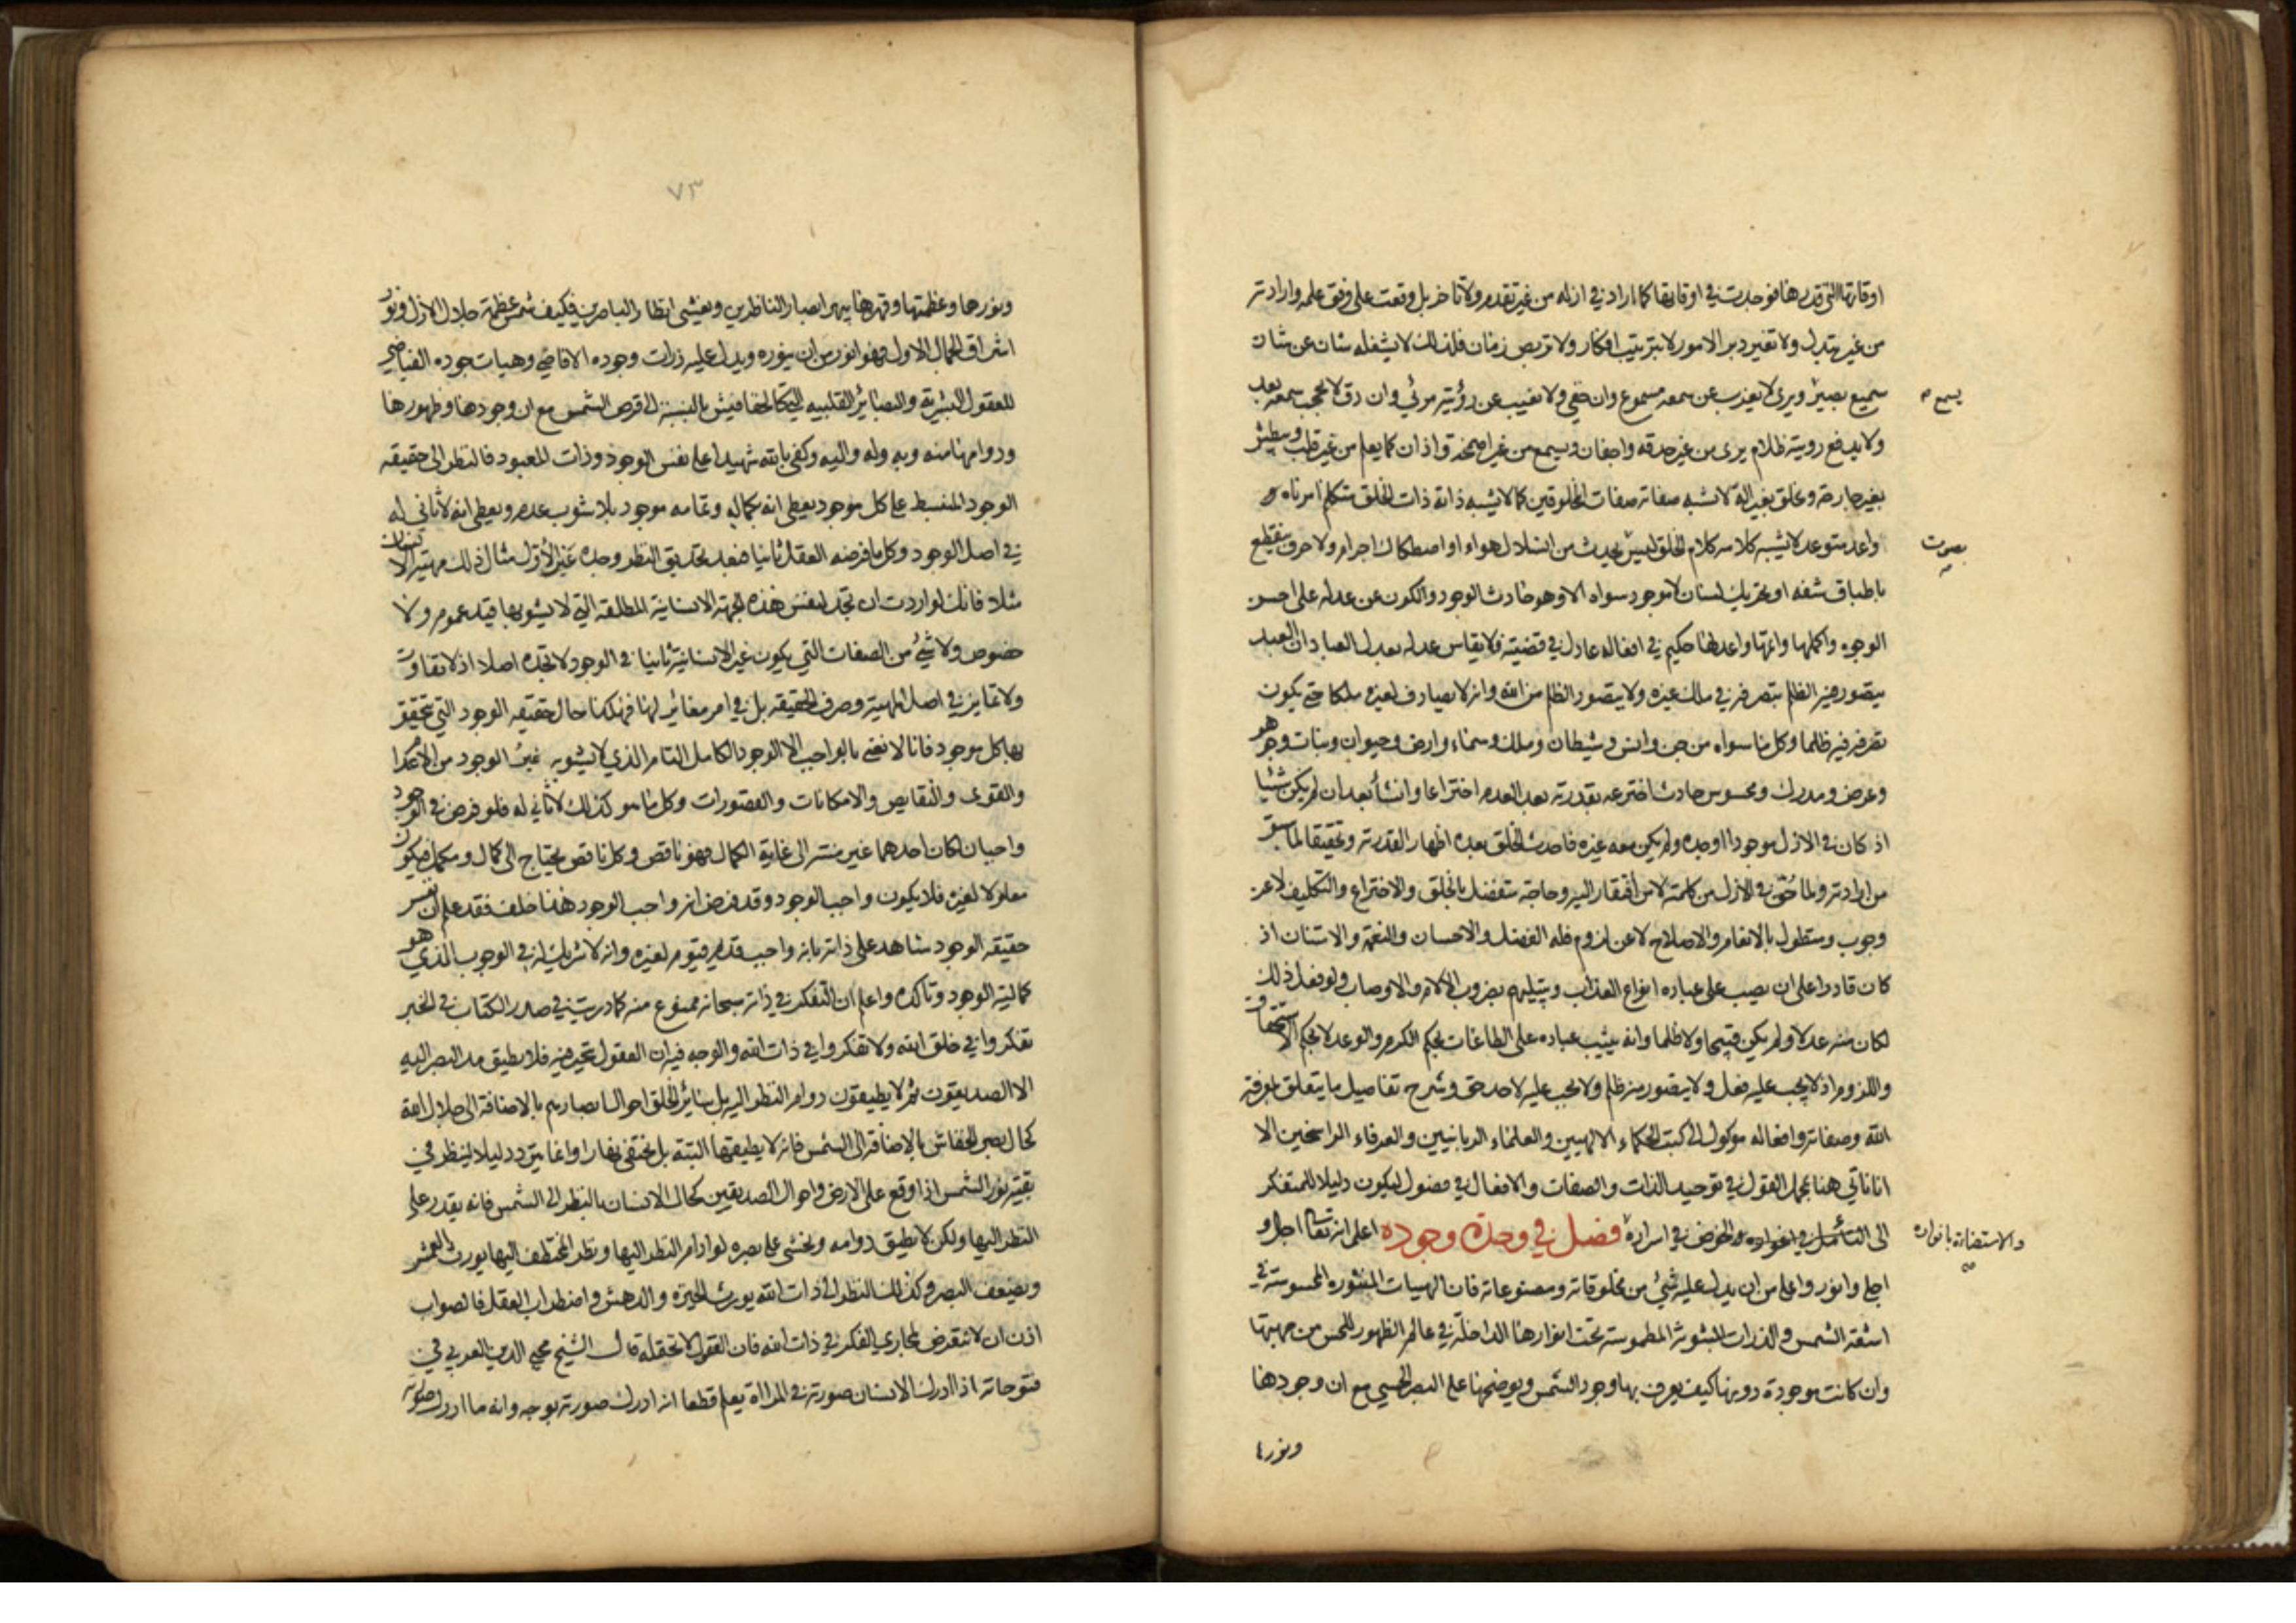 اوقاتها التي قدرها فوجدت في اوقاتها كما اراد في ازله من غير تقدم ولا تاخر بل وقعت على وفق علمه وارادته
من غير تبدل ولا تغير دبر الامور لا بترتيب افكار ولا تربص زمان فلذلك لا يشغله شان عن شان
سميع بصير ويرى لا يعزب عن سمعه مسموع وان خفي ولا يغيب عن رؤيته مرئي وان دق لا يحجب سمعه بعد
يسمع
ولا يدفع رويته ظلام يرى من غير حدقه واجفان ويسمع من غير اصمخة واذان كما يعلم من غير قلب ويبطش
بغير جارحة ويخلق بغير الة لا تشبه صفاته صفات المخلوقين كما لا يشبه ذاته ذات الخلق متكلم امر ناه و
واعد متوعد لا يشبه كلامه كلام الخلق ليس يحدث من انسلال هواء او اصطكاك اجرام ولا حرف ينقطع
بصوت
باطباق شفه او تحريك لسان لا موجود سواه الا وهو حادث الوجود والكون عن عدله على احسن
الوجوه واكملها واتمها واعدلها حكيم في افعاله عادل في قضيته فلا يقاس عدله بعدل العباد ان العبد
يتصور منه الظلم بتصرفه في ملك غيره ولا يتصور الظلم من الله وانه لا يصادف لغيره ملكا حتى يكون
تصرفه فيه ظلما وكل ما سواه من جن وانس وشيطان وملك وسماء وارض وحيوان ونبات وجوهر
وعرض ومدرك ومحسوس حادث اخترعه بقدرته بعد العدم اختراعا وانشأ بعد ان لم يكن شيئا
اذ كان في الازل موجودا وحده ولم يكن معه غيره فاحدث الخلق بعده اظهار القدرته وتحقيقا لما سبق
من ارادته ولما حق في الازل من كلمته لا من افتقار اليه وحاجة متفضل بالخلق والاختراع والتكليف لا عن
وجوب ومتطول بالانعام والاصلاح لا عن لزوم فله الفضل والاحسان والنعمة والامتنان اذ
كان قادرا على ان يصب على عباده انواع العذاب ويبتليهم بضروب الالام والاوصاب ولو فعل ذلك
لكان منه عدلا ولم يكن قبيحا ولا ظلما وانه يثيب عباده على الطاعات بحكم الكرم والوعد لا بحكم الاستحقاق
واللزوم اذ لا يجب عليه فعل ولا يتصور منه ظلم ولا يجب عليه لاحد حق وشرح تفاصيل ما يتعلق بمعرفة
الله وصفاته وافعاله موكول الى كتب الحكماء الالهيين والعلماء الربانيين والعرفاء الراسخين الا
انا ناتي هنا بمجمل القول في توحيد الذات والصفات والافعال في فصول ليكون دليلا للمتفكر
الى التأمل في اغواره والخوض في اسراره فصل في وحدة وجوده اعلم انه تعالى اجل و
والاستضاءة بانواره
اجلى وانور واعلى من ان يدل عليه شئ من مخلوقاته ومصنوعاته فان الهبيات المنثوره المحسوسة في
اشعة الشمس والذرات المبثوثة المطموسة تحت انوارها الداخلة في عالم الظهور للحس من جهتها
وان كانت موجودة دونها كيف يعرف بها وجود الشمس ويوضحها على البصر الحسي مع ان وجودها
ونورها
٧٣
ونورها وعظمتها وقهرها يبهر ابصار الناظرين ويعشي انظار الباصرين فكيف شمس عظمة جلال الازل ونور
اشراق الجمال الاول فهو انور من ان ينوره ويدل عليه ذرات وجوده الافاضي وهبات جوده الفياضي
للعقول البشرية والبصائر القلبيه التي كالخفافيش بالنسبة الى قرص الشمس مع ان وجودها وظهورها
ودوامها منه وبه وله واليه وكفى بالله شهيدا على نفس الوجود وذات المعبود فالنظر الى حقيقه
الوجود المنبسط على كل موجود يعطى انه بكماله وتمامه موجود بلا شوب عدم ويعطى انه لا ثاني له
في اصل الوجود وكل ما فرضه العقل ثانيا فبعد تحديق النظر وجده عين الأول مثال ذلك مهية الانسان
مثلا فانك لو اردت ان تجد لنفس هذه الجهة الانسانية المطلقة التي لا يشوبها قيد عموم ولا
خصوص ولا شئ من الصفات التي يكون غير الانسانية ثانيا في الوجود لا تجده اصلا اذ لا تفاوت
ولا تمايز في اصل المهية وصرف الحقيقه بل في امر مغائر لها فهكذا حال حقيقه الوجود التي تحقق
بها كل موجود فانا لا نعني بالواجب الا الوجود الكامل التام الذي لا يشوبه غير الوجود من الاعدام
والقوى والنقايص والامكانات والقصورات وكل ما هو كذلك لا ثاني له فلو فرض في الوجود
واجبان لكان احدهما غير منته الى غاية الكمال فهو ناقص وكل ناقص يحتاج الى كمال ومكمل فيكون
معلولا لغيره فلا يكون واجب الوجود وقد فرض انه واجب الوجود هذا خلف فقد علم ان نفس
حقيقه الوجود شاهد على ذاته بانه واجب قديم قيوم لغيره وانه لا شريك له في الوجوب الذي هو
كمالية الوجود وتاكده واعلم ان التفكر في ذاته سبحانه ممنوع منه كما دريت في صدر الكتاب في الخبر
تفكروا في خلق الله ولا تفكروا في ذات الله والوجه فيه ان العقول تتحير فيه فلا يطيق مد البصر اليه
الا الصديقون ثم لا يطيقون دوام النظر اليه بل سائر الخلق احوال ابصارهم بالاضافة الى جلال الله
كحال بصر الخفاش بالاضافة الى الشمس فانه لا يطيقها البتة بل يختفى نهارا وانما يتردد ليلا لينظر في
بقية نور الشمس اذا وقع على الارض واحوال الصديقين كحال الانسان بالنظر الى الشمس فانه يقدر على
النظر اليها ولكن لا يطيق دوامه ويخشى على بصره لو ادام النظر اليها ونظر المختطف اليها يورث العمش
ويضعف البصر وكذلك النظر الى ذات الله يورث الحيرة والدهش واضطراب العقل فالصواب
اذن ان لا نتعرض لمجاري الفكر في ذات الله فان العقول لا تحتمله قال الشيخ محيي الدين العربي في
فتوحاته اذا ادرك الانسان صورته في المراة يعلم قطعا انه ادرك صورته بوجه وانه ما ادرك صورته